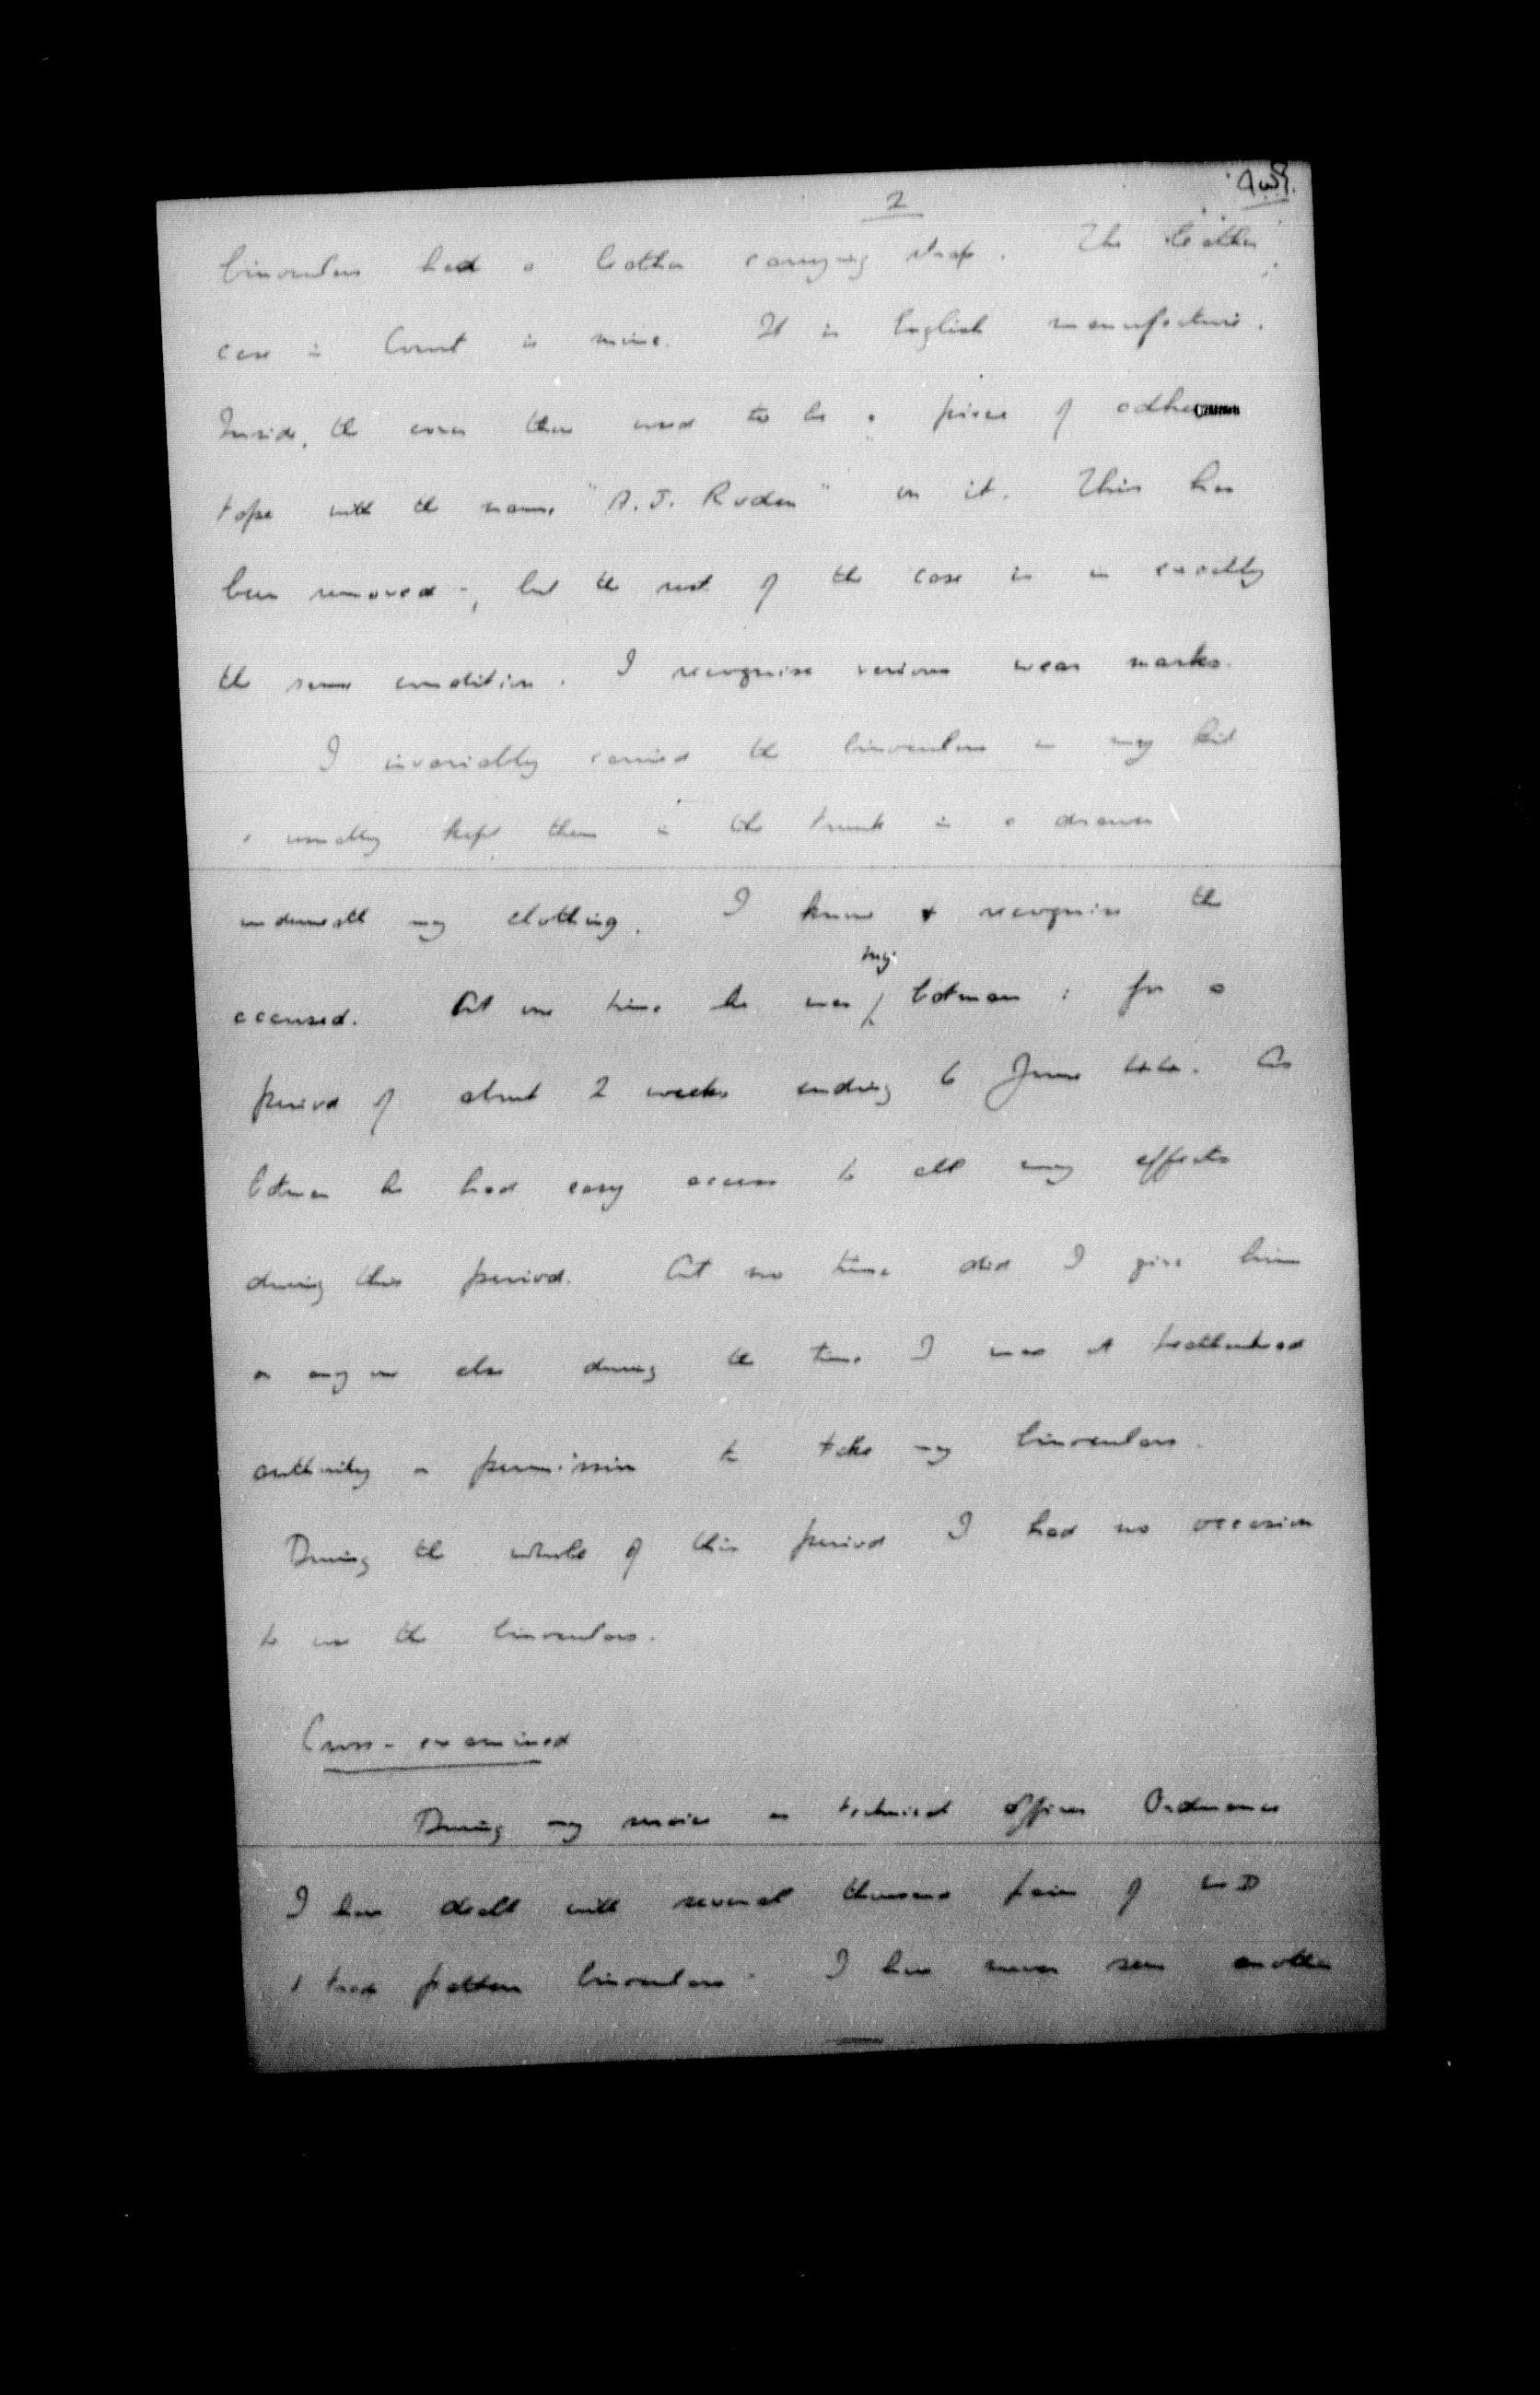 2
binoculars had a leather carrying strap. The leather
case in Court is mine. It is English manufacture.
Inside, the cover there used to be a piece of adhe
tape with the name "A. J. Roden" on it. This has
been removed -, but the rest of the case is in exactly
the same condition. I recognise various wear marks.
I invariably carried the binoculars in my kit
& usually kept them in the trunk in a drawer
underneath my clothing. I know & recognise the
accused. At one time he was my batman : for a
period of about 2 weeks ending 6 June. As
batman he had easy access to all my effects
during this period. At no time did I give him
or any one else during the time I was at
authority or permission to take my binoculars.
During the whole of this period I had no occasion
to use the binoculars.
Cross-examined
During my service as technical officer Ordnance
I have dealt with several thousand pairs of WD
& trade pattern binoculars. I have never seen another